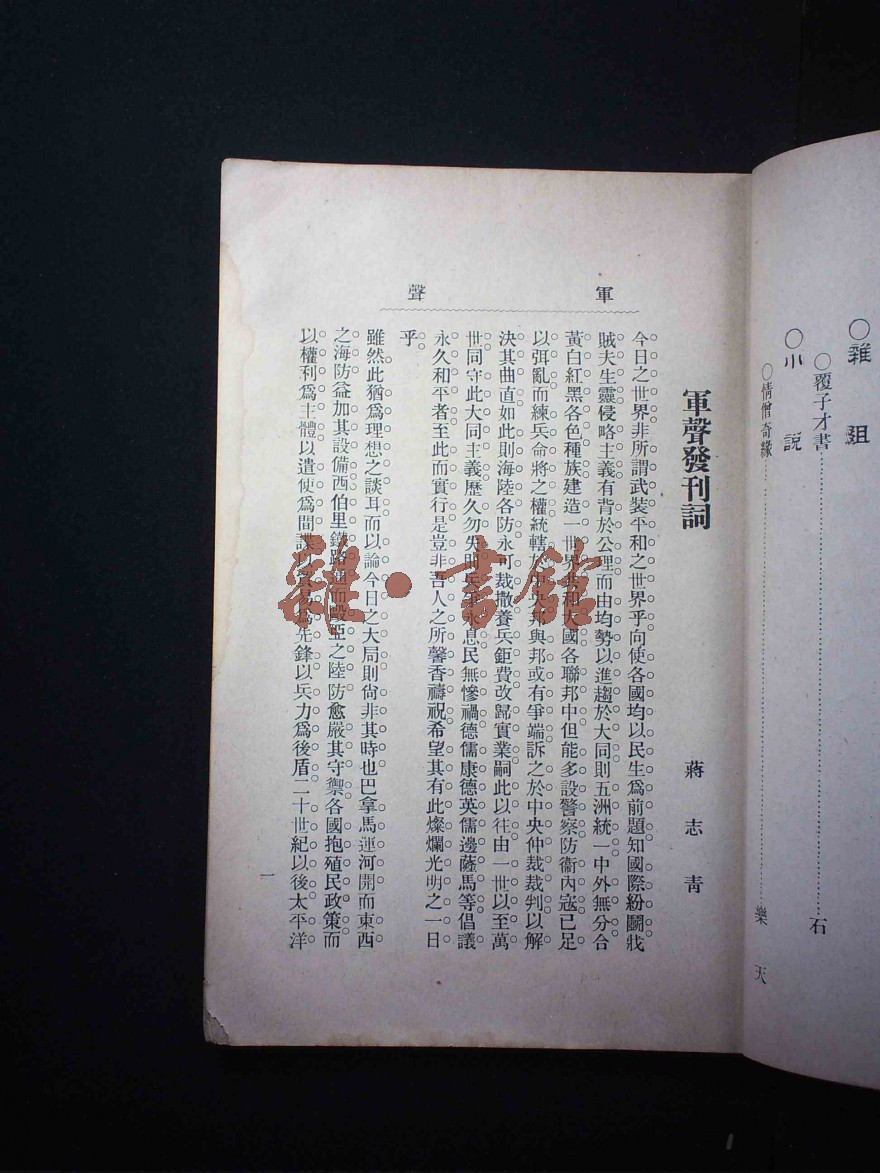 ○雜俎
○覆子才書……石
○小説
○情僧奇緣……樂天
軍聲
軍聲發刊詞
蔣志靑
今日之世界非所謂武裝平和之世界乎向使各國均以民生爲前題知國際紛鬭戕
賊夫生靈侵略主義有背於公理而由均勢以進趨於大同則五洲統一中外無分合
黃白紅黑各色種族建造一世界共和大國各聯邦中但能多設警察防衞內寇已足
以弭亂而練兵命將之權統轄於中央邦與邦或有爭端訴之於中央仲裁裁判以解
決其曲直如此則海陸各防永可裁撒養兵鉅費改歸實業嗣此以往由一世以至萬
世同守此大同主義歷久勿失則兵永息民無慘禍德儒康德英儒邊薩馬等倡議
永久和平者至此而實行是豈非吾人之所馨香禱祝希望其有此燦爛光明之一日
乎
雖然此猶爲理想之談耳而以論今日之大局則尙非其時也巴拿馬運河開而東西
之海防益加其設備西伯里鐵路通而歐亞之陸防愈嚴其守禦各國抱殖民政策而
以權利爲主體以遣使爲間諜以貿易爲先鋒以兵力爲後盾二十世紀以後太平洋
一
雜·書館